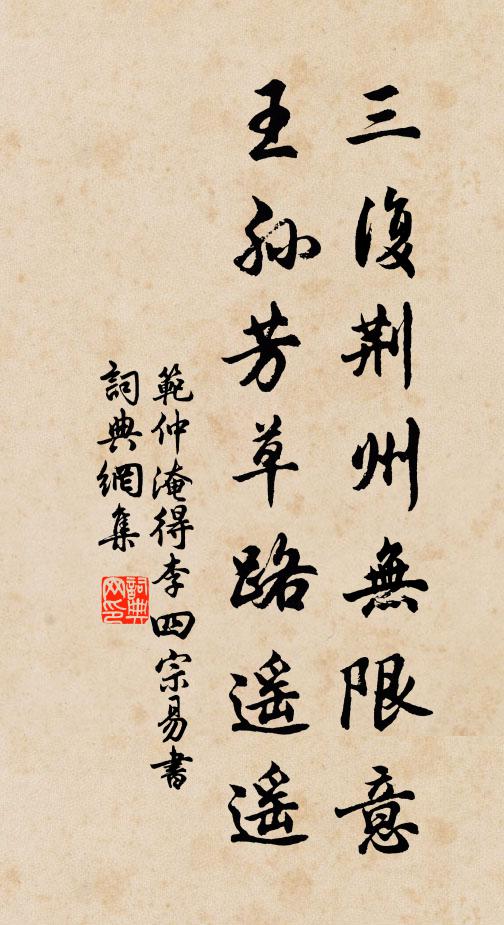 三復荆州無限意
王孫芳草路遥遥
範仲淹得李四宗易書
詞典網集
詞典網印